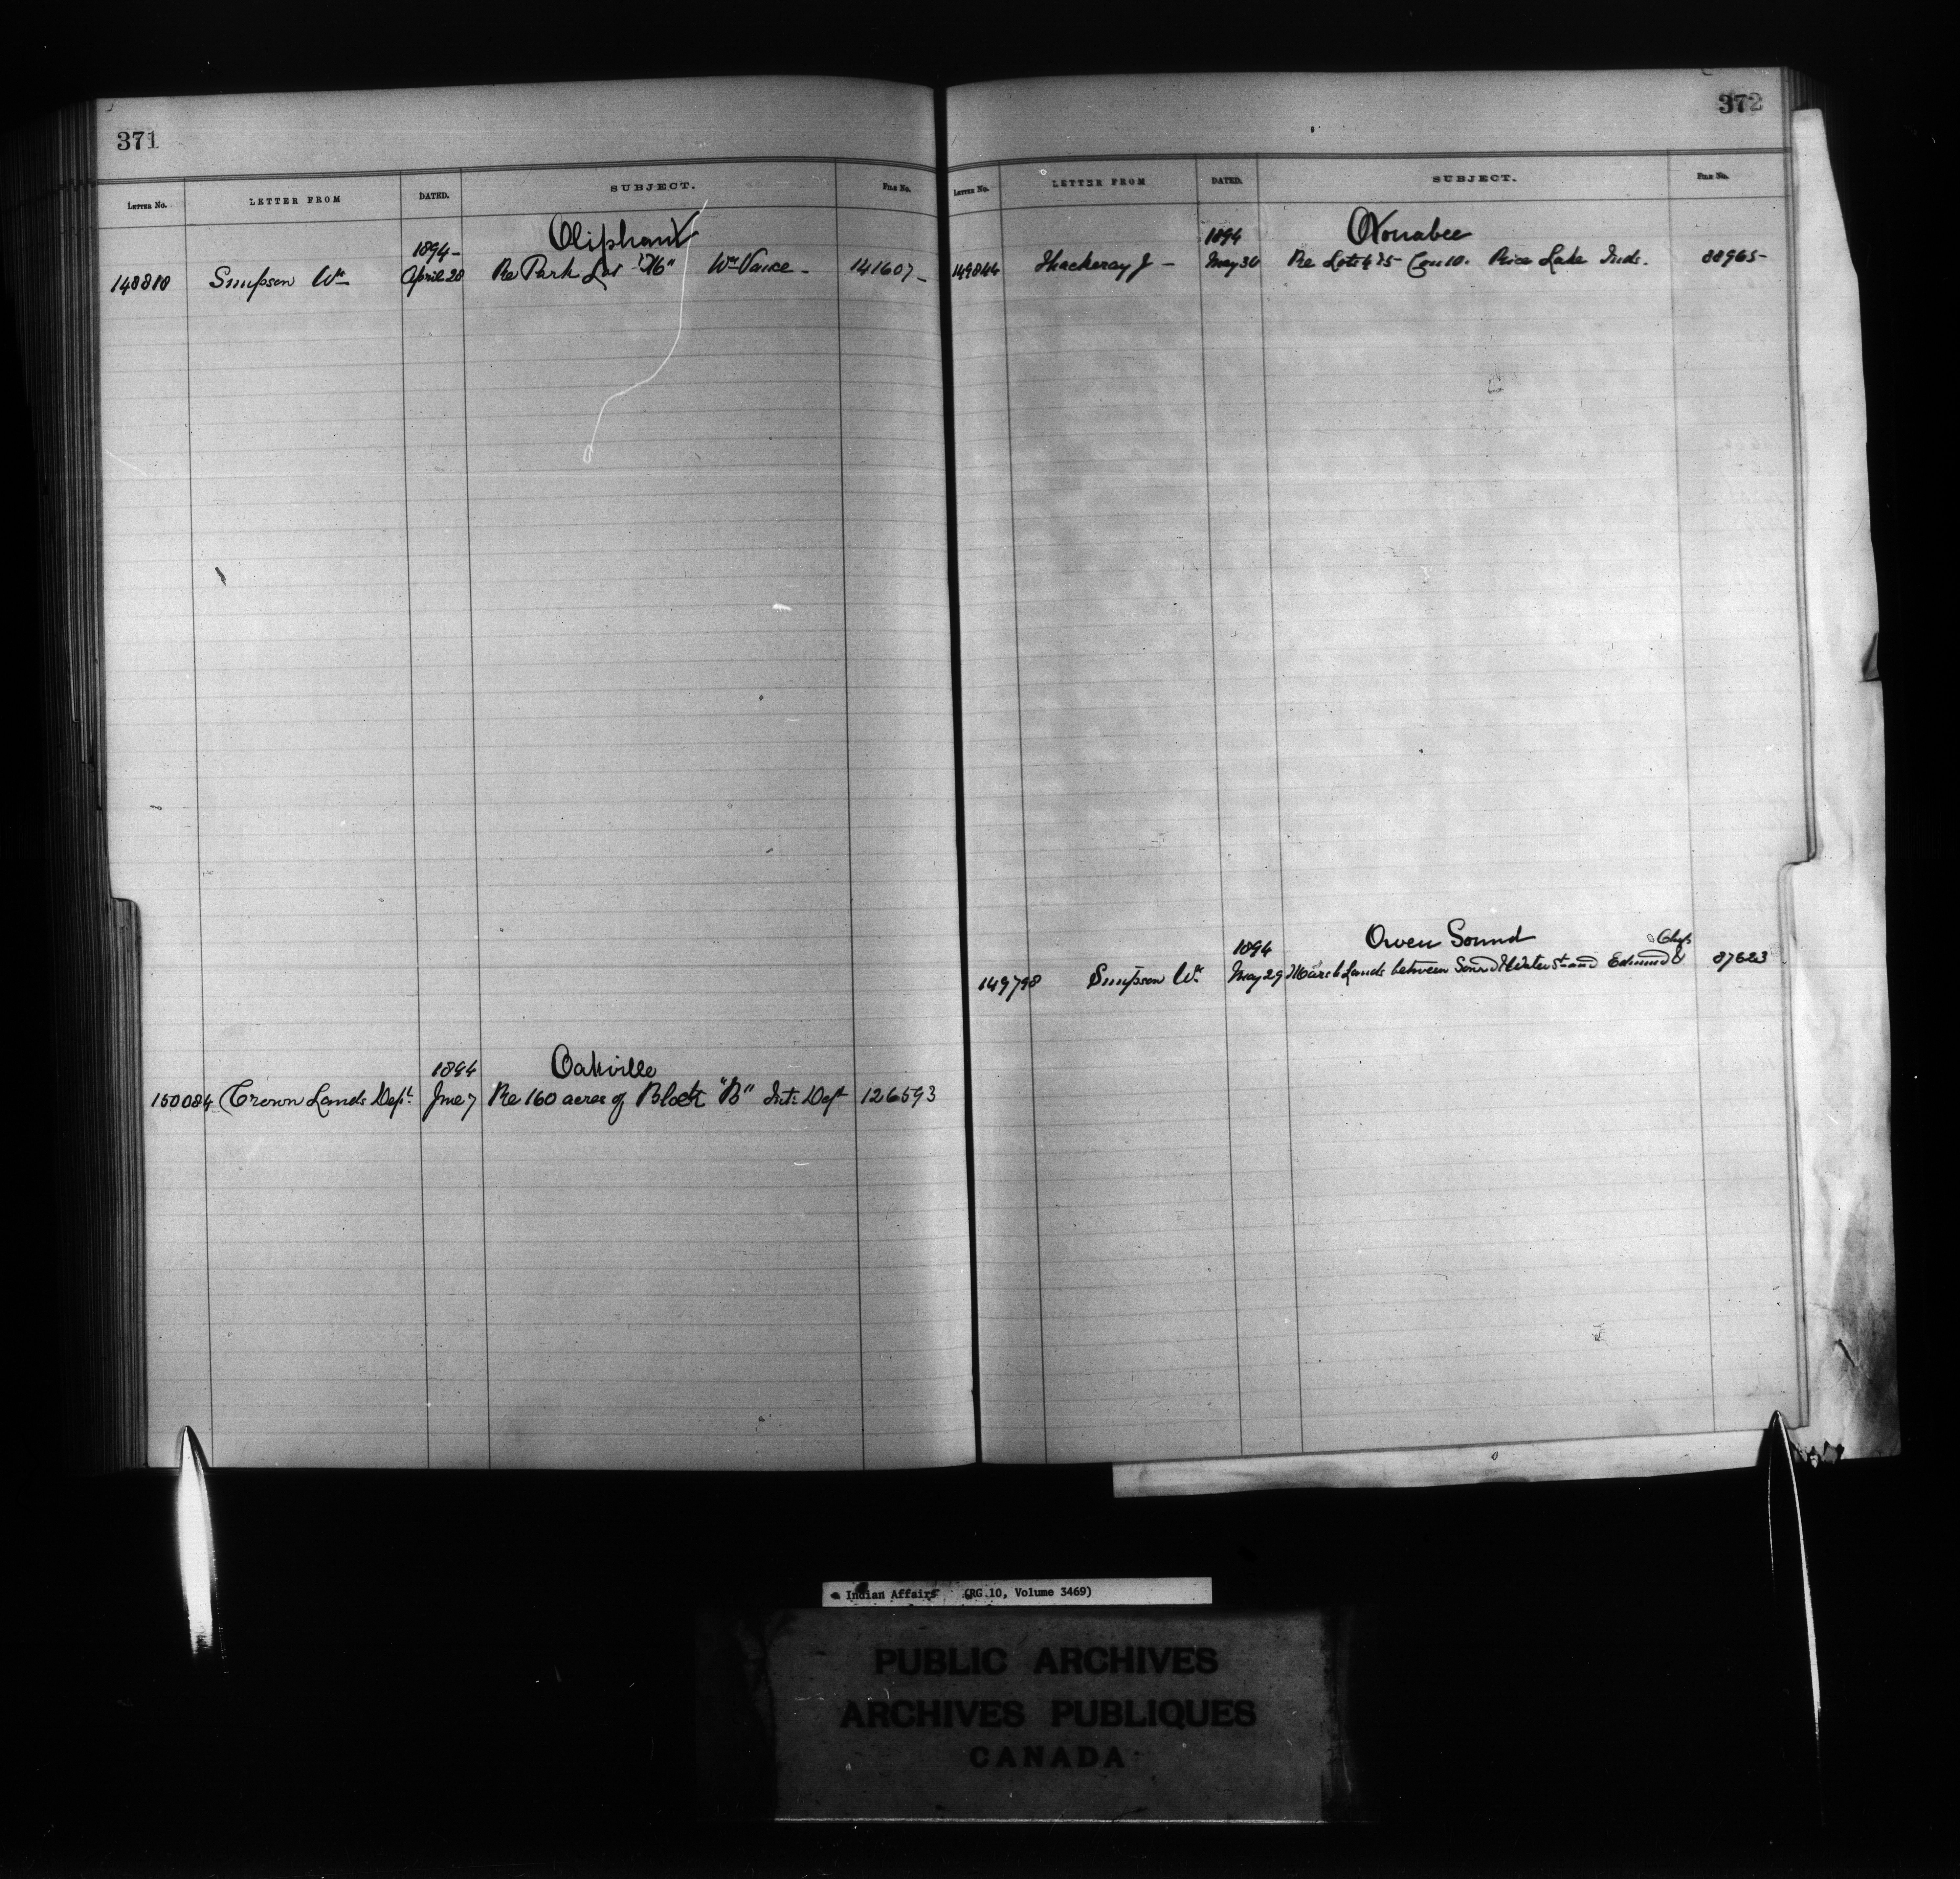 371
LETTER No. LETTER FROM DATED. SUBJECT. FILE No.
Oliphant
1894-
148880 Simpson Wm April 28 Re Park Lot "16" Wm Vance - 141607 -
1894 Oakville
150084 Crown Lands Dept. June 7 Re 160 acres of Block "B" Int: Dept 126593
372
LETTER No. LETTER FROM DATED. SUBJECT. FILE No.
1894 Otonabee
149844 Thackeray J - May 30 Re Lots 4 & 5 Con 10. Rice Lake Inds. 88965 -
1894 Owen Sound
149798 Simpson Wm May 29 Marsh Lands between Sound & Water St and Edmund 87623
Indian Affairs (RG 10, Volume 3469)
PUBLIC ARCHIVES
ARCHIVES PUBLIQUES
CANADA